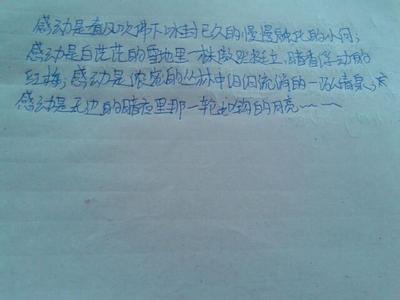 感动是春风吹拂下冰封已久的慢慢融化的小河;
感动是白茫茫的雪地里一株傲然挺立、暗香浮动的
红梅;感动是浓密的丛林中汩汩流淌的一泓清泉;
感动是无边的暗夜里那一轮如钩的月亮~~